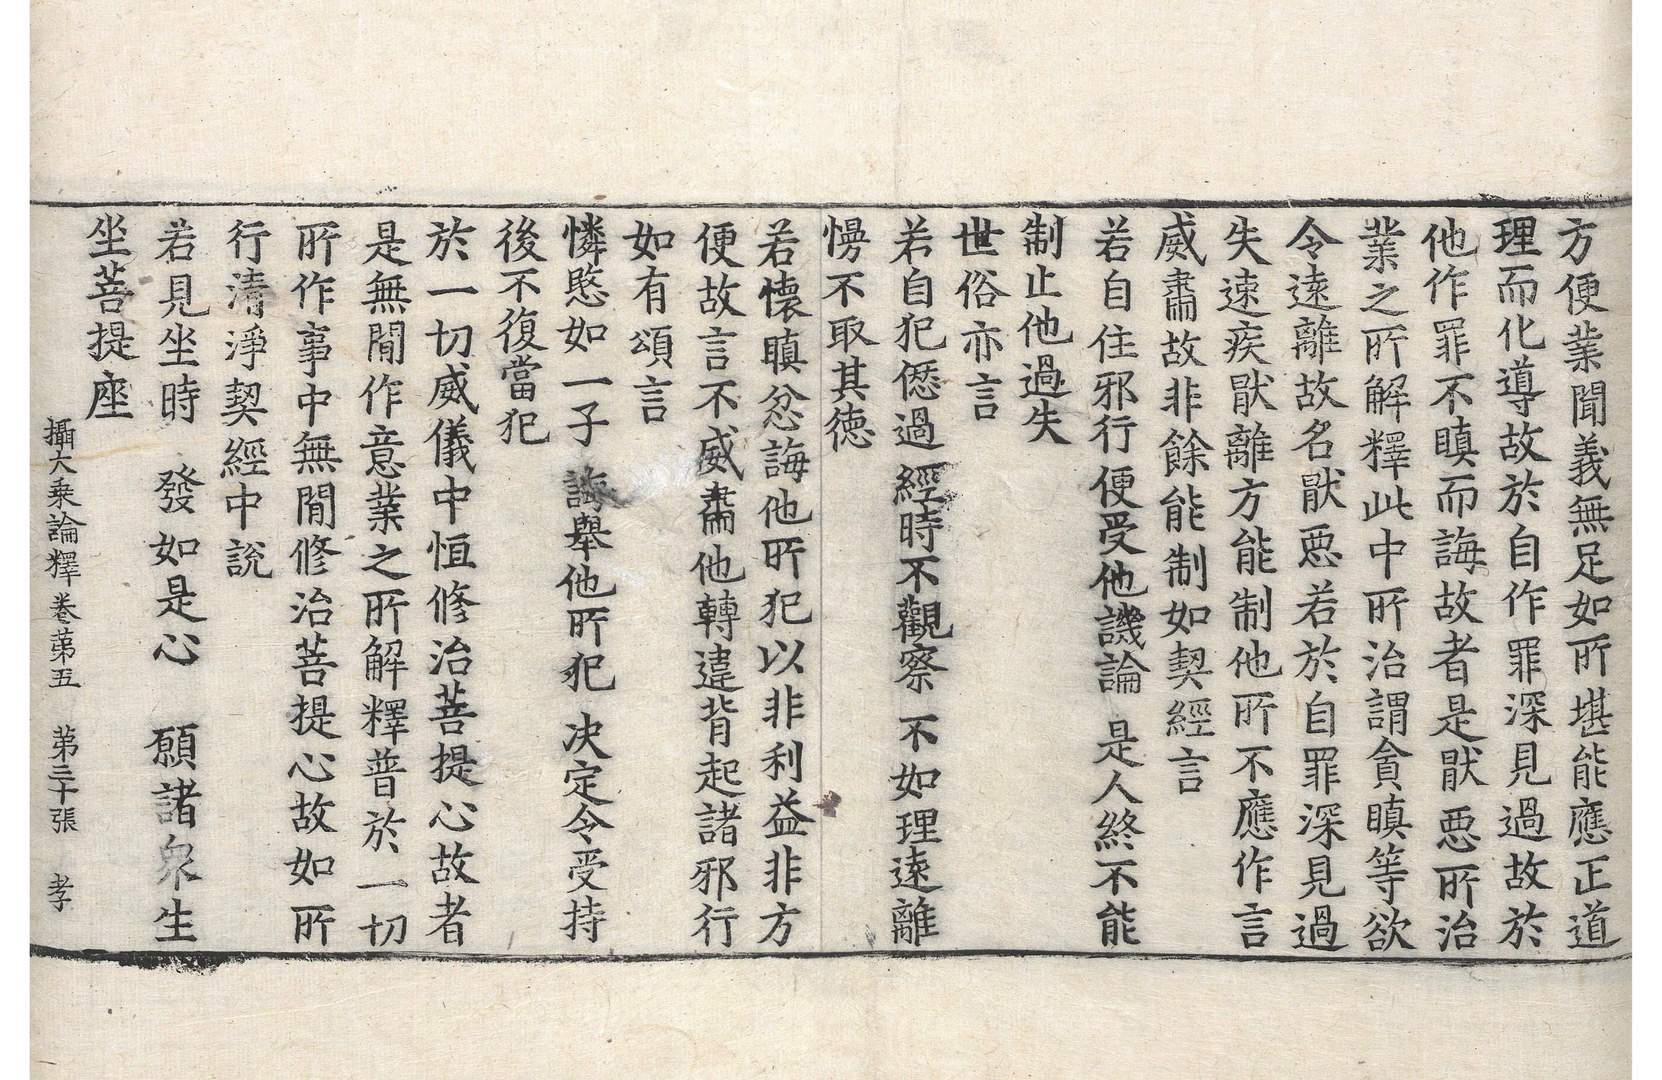 方便業聞義無足如所堪能應正道
理而化導故於自作罪深見過故於
他作罪不瞋而誨故者是猒惡所治
業之所解釋此中所治謂貪瞋等欲
令遠離故名猒惡若於自罪深見過
失速疾猒離方能制他所不應作言
威肅故非餘能制如契經言
若自住邪行便受他譏論 是人終不能
制止他過失
世俗亦言
若自犯僁過 經時不觀察 不如理遠離
慢不取其徳
若懷瞋忿誨他所犯以非利益非方
便故言不威肅他轉違背起諸邪行
如有頌言
憐愍如一子 誨舉他所犯 决定令受持
後不復當犯
於一切威儀中恒修治菩提心故者
是無閒作意業之所解釋普於一切
所作事中無閒修治菩提心故如所
行清淨契經中説
若見坐時 發如是心 願諸衆生
坐菩提座
攝大乗論釋卷苐五 苐三十張 孝